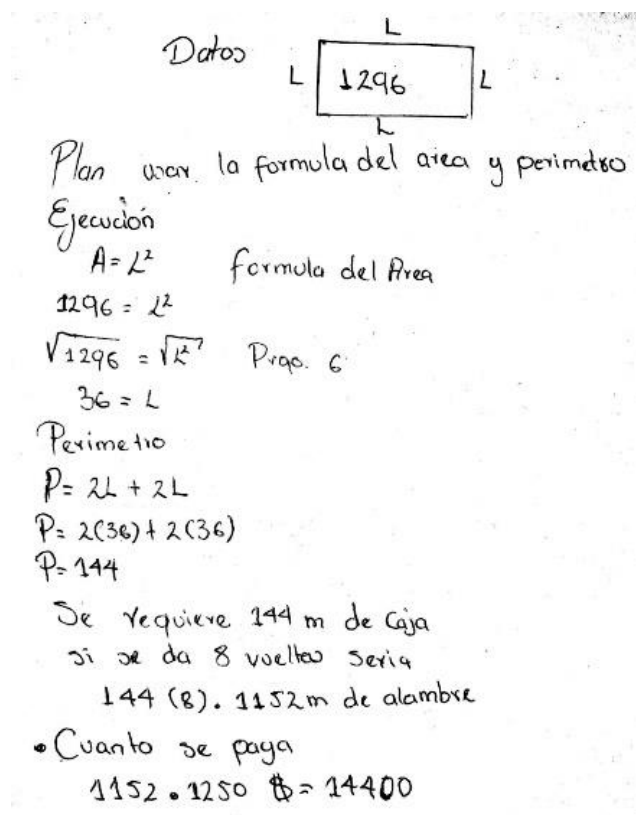 L
Datos
L 1296 L
L
Plan usar la formula del area y perimetro
Ejecución
A = L² formula del Area
1296 = L²
√1296 = √L² Prqo. 6
36 = L
Perimetro
P = 2L + 2L
P = 2(36) + 2(36)
P = 144
Se requiere 144 m de Caja
si se da 8 vueltas seria
144 (8). 1152m de alambre
• Cuanto se paga
1152 . 1250 $ = 14400